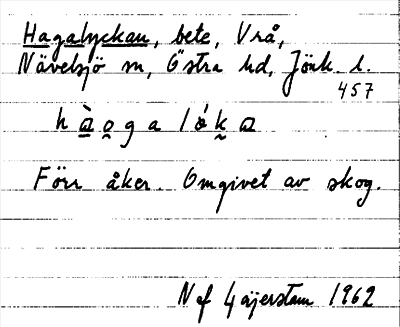 Hagalyckan, bete, Vrå,
Nävelsjö sn, Östra hd, Jönk. l.
457
hàogalókа
Förr åker. Omgivet av skog.
1962